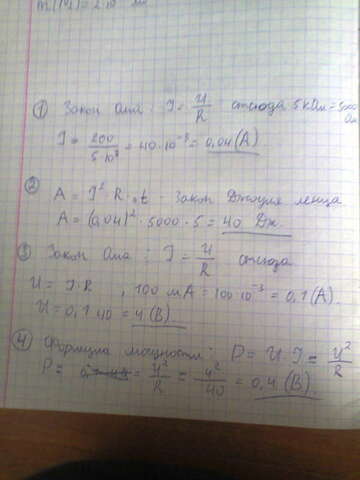 ① Закон Ома : I = U/R отсюда 5 кОм = 5000 Ом
I = 200/5·10³ = 40·10⁻³ = 0,04 (А)
② A = I²·R·t - Закон Джоуля ленца
A = (0,04)²·5000·5 = 40 Дж.
③ Закон Ома : I = U/R отсюда
U = I·R , 100 мА = 100·10⁻³ = 0,1 (А).
U = 0,1·40 = 4 (В)
④ Формула мощности : P = U·I = U²/R
P = U²/R = 4²/40 = 0,4 (В).